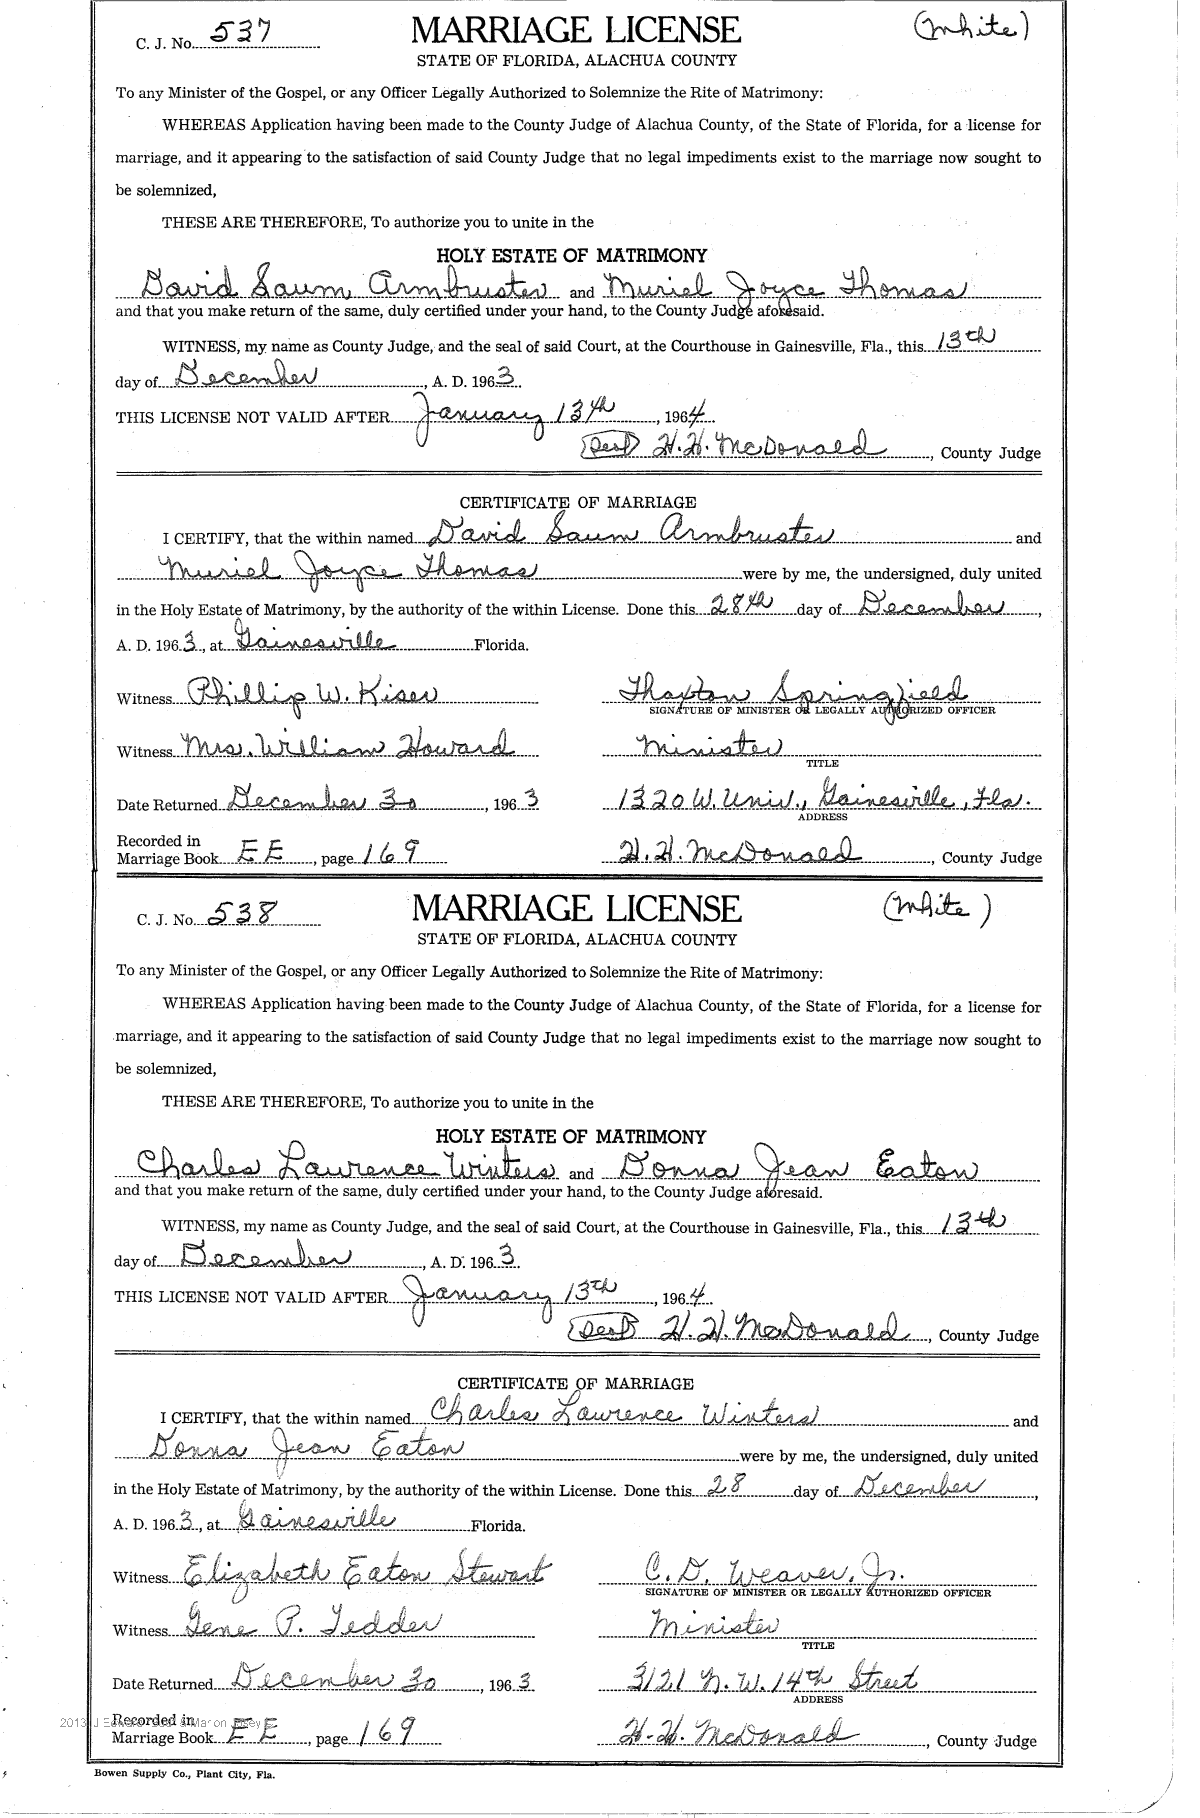 C. J. No. 537 MARRIAGE LICENSE (White)
STATE OF FLORIDA, ALACHUA COUNTY
To any Minister of the Gospel, or any Officer Legally Authorized to Solemnize the Rite of Matrimony:
WHEREAS Application having been made to the County Judge of Alachua County, of the State of Florida, for a license for
marriage, and it appearing to the satisfaction of said County Judge that no legal impediments exist to the marriage now sought to
be solemnized,
THESE ARE THEREFORE, To authorize you to unite in the
HOLY ESTATE OF MATRIMONY
David Saum Armbruster and Muriel Joyce Thomas
and that you make return of the same, duly certified under your hand, to the County Judge aforesaid.
WITNESS, my name as County Judge, and the seal of said Court, at the Courthouse in Gainesville, Fla., this 13th
day of December, A. D. 1963.
THIS LICENSE NOT VALID AFTER January 13th, 1964
(Seal) H. H. McDonald, County Judge
CERTIFICATE OF MARRIAGE
I CERTIFY, that the within named David Saum Armbruster and
Muriel Joyce Thomas were by me, the undersigned, duly united
in the Holy Estate of Matrimony, by the authority of the within License. Done this 28th day of December,
A. D. 1963, at Gainesville Florida.
Witness Phillip W. Kiser Thaxton Springfield
SIGNATURE OF MINISTER OR LEGALLY AUTHORIZED OFFICER
Witness Mrs. William Howard Minister
TITLE
Date Returned December 30, 1963 1320 W. Univ., Gainesville, Fla.
ADDRESS
Recorded in
Marriage Book EE, page 169 H. H. McDonald, County Judge
C. J. No. 538 MARRIAGE LICENSE (White)
STATE OF FLORIDA, ALACHUA COUNTY
To any Minister of the Gospel, or any Officer Legally Authorized to Solemnize the Rite of Matrimony:
WHEREAS Application having been made to the County Judge of Alachua County, of the State of Florida, for a license for
marriage, and it appearing to the satisfaction of said County Judge that no legal impediments exist to the marriage now sought to
be solemnized,
THESE ARE THEREFORE, To authorize you to unite in the
HOLY ESTATE OF MATRIMONY
Charles Lawrence Winters and Donna Jean Eaton
and that you make return of the same, duly certified under your hand, to the County Judge aforesaid.
WITNESS, my name as County Judge, and the seal of said Court, at the Courthouse in Gainesville, Fla., this 13th
day of December, A. D. 1963.
THIS LICENSE NOT VALID AFTER January 13th, 1964
(Seal) H. H. McDonald, County Judge
CERTIFICATE OF MARRIAGE
I CERTIFY, that the within named Charles Lawrence Winters and
Donna Jean Eaton were by me, the undersigned, duly united
in the Holy Estate of Matrimony, by the authority of the within License. Done this 28 day of December,
A. D. 1963, at Gainesville Florida.
Witness Elizabeth Eaton Stewart C. D. Weaver, Jr.
SIGNATURE OF MINISTER OR LEGALLY AUTHORIZED OFFICER
Witness Gene P. Tedder Minister
TITLE
Date Returned December 30, 1963 3121 N. W. 14th Street
ADDRESS
2013 J
Recorded in
Marriage Book EE, page 169 H. H. McDonald, County Judge
Bowen Supply Co., Plant City, Fla.